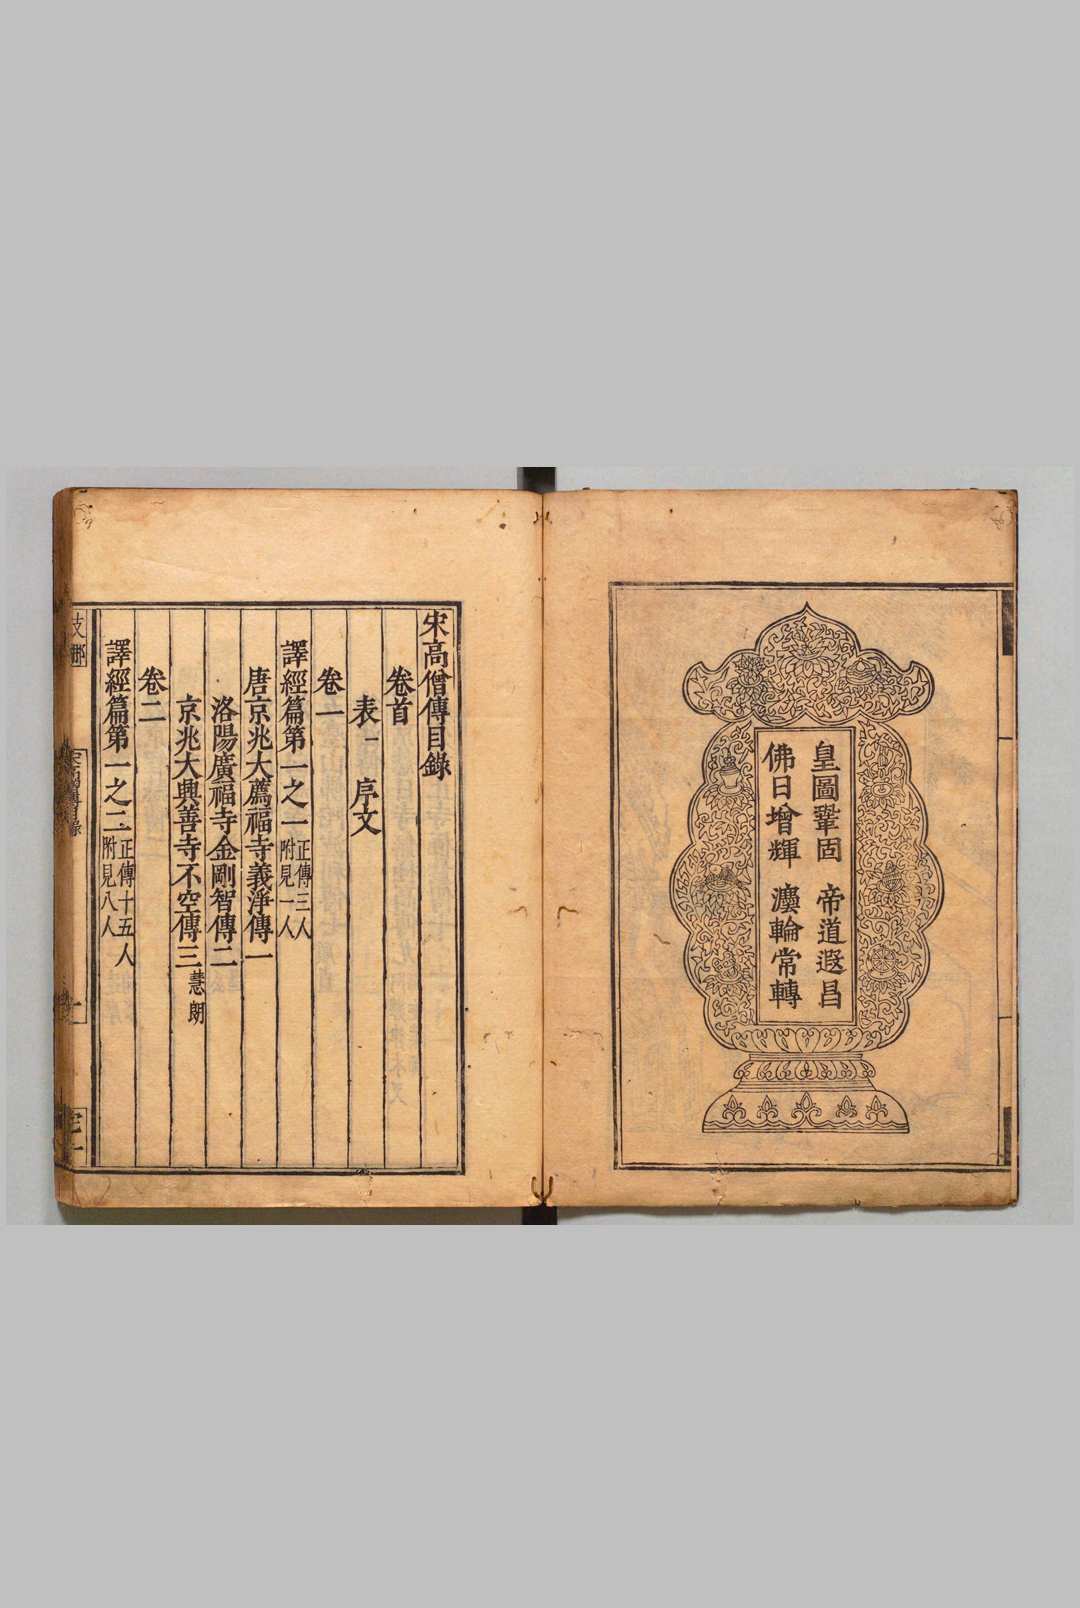 皇圖鞏固　帝道遐昌
佛日增輝　灋輪常轉
宋高僧傳目錄
卷首
表一　序文
卷一
譯經篇第一之一正傳三人附見一人
唐京兆大薦福寺義淨傳一
洛陽廣福寺金剛智傳二
京兆大興善寺不空傳三慧朗
卷二
譯經篇第一之二正傳十五人附見八人